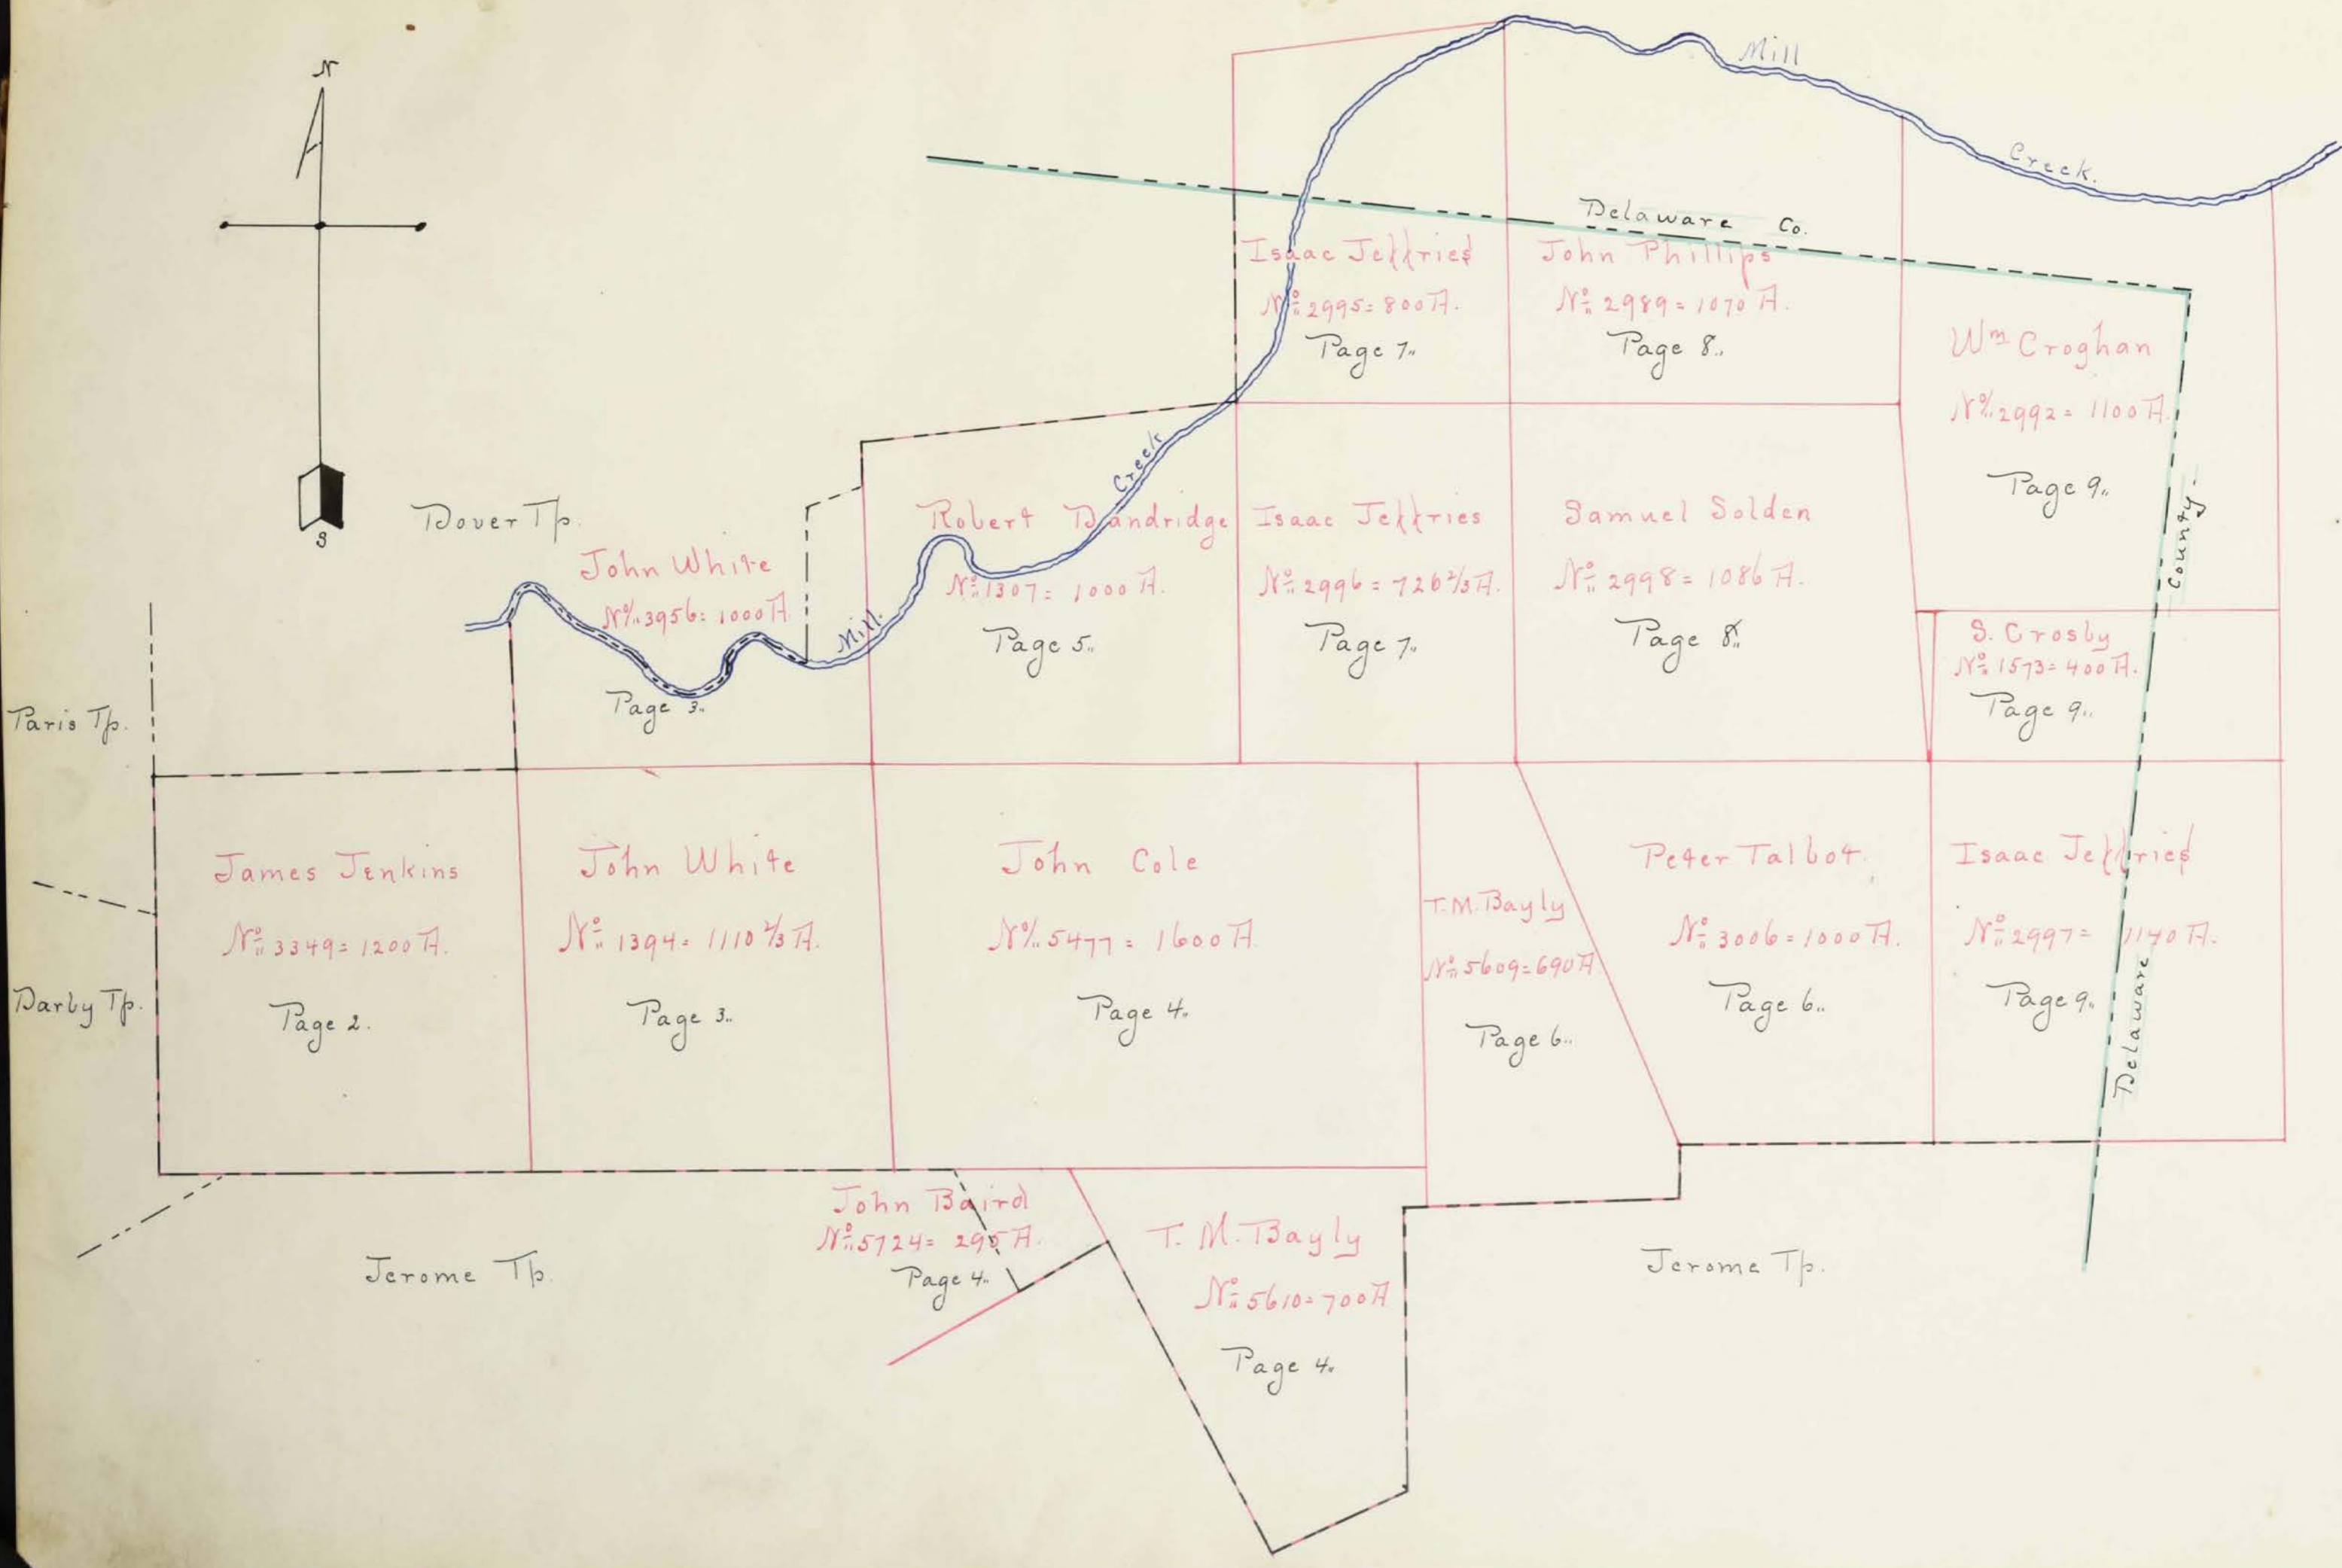 N
S
Mill
Creek.
Delaware Co.
Isaac Jeffries
Nº 2995 = 800 A.
Page 7.
John Phillips
Nº 2989 = 1070 A.
Page 8.
Wm Croghan
Nº 2992 = 1100 A.
Page 9.
Dover Tp.
John White
Nº 3956 = 1000 A.
Page 3.
Mill.
Creek
Robert Dandridge
Nº 1307 = 1000 A.
Page 5.
Isaac Jeffries
Nº 2996 = 726 2/3 A.
Page 7.
Samuel Solden
Nº 2998 = 1086 A.
Page 8.
County
S. Crosby
Nº 1573 = 400 A.
Page 9.
Paris Tp.
Darby Tp.
James Jenkins
Nº 3349 = 1200 A.
Page 2.
John White
Nº 1394 = 1110 2/3 A.
Page 3.
John Cole
Nº 5477 = 1600 A.
Page 4.
T. M. Bayly
Nº 5609 = 690 A
Page 6.
Peter Talbot.
Nº 3006 = 1000 A.
Page 6.
Isaac Jeffries
Nº 2997 = 1140 A.
Page 9.
Delaware
John Baird
Nº 5724 = 295 A.
Page 4.
T. M. Bayly
Nº 5610 = 700 A
Page 4.
Jerome Tp.
Jerome Tp.